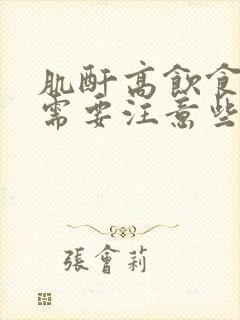 肌酐高飲食
需要注意些
張會莉